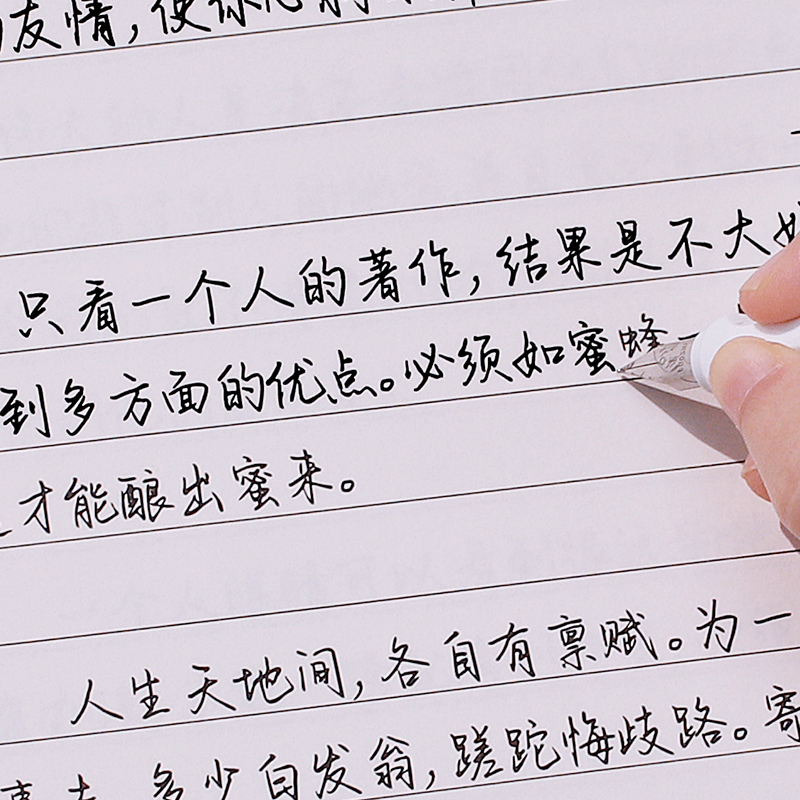 友情,使你
只看一个人的著作,结果是不大
到多方面的优点。必须如蜜蜂一
才能酿出蜜来。
人生天地间,各自有禀赋。为一
去,多少白发翁,蹉跎悔歧路。寄